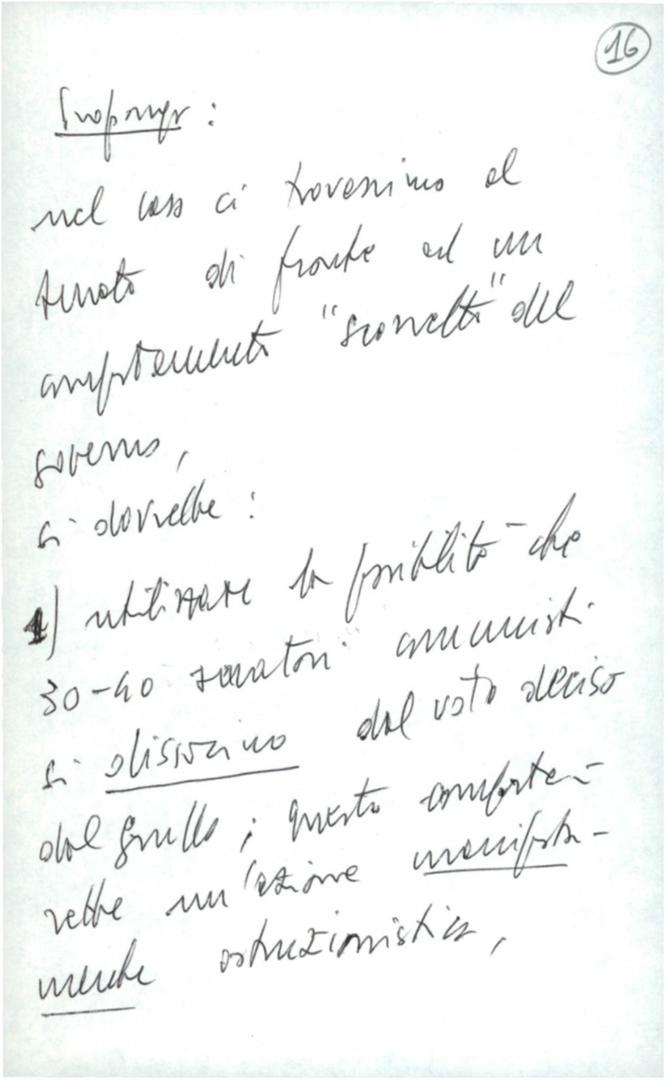 16
nel caso ci trovassimo al
senato di fronte ad un
comportamento "scorretto" del
governo,
si dovrebbe :
1) utilizzare la possibilità che
30-40 senatori comunisti
si dissocino dal voto deciso
dal gruppo ; questo comporte-
rebbe un'azione manifesta-
mente ostruzionistica,